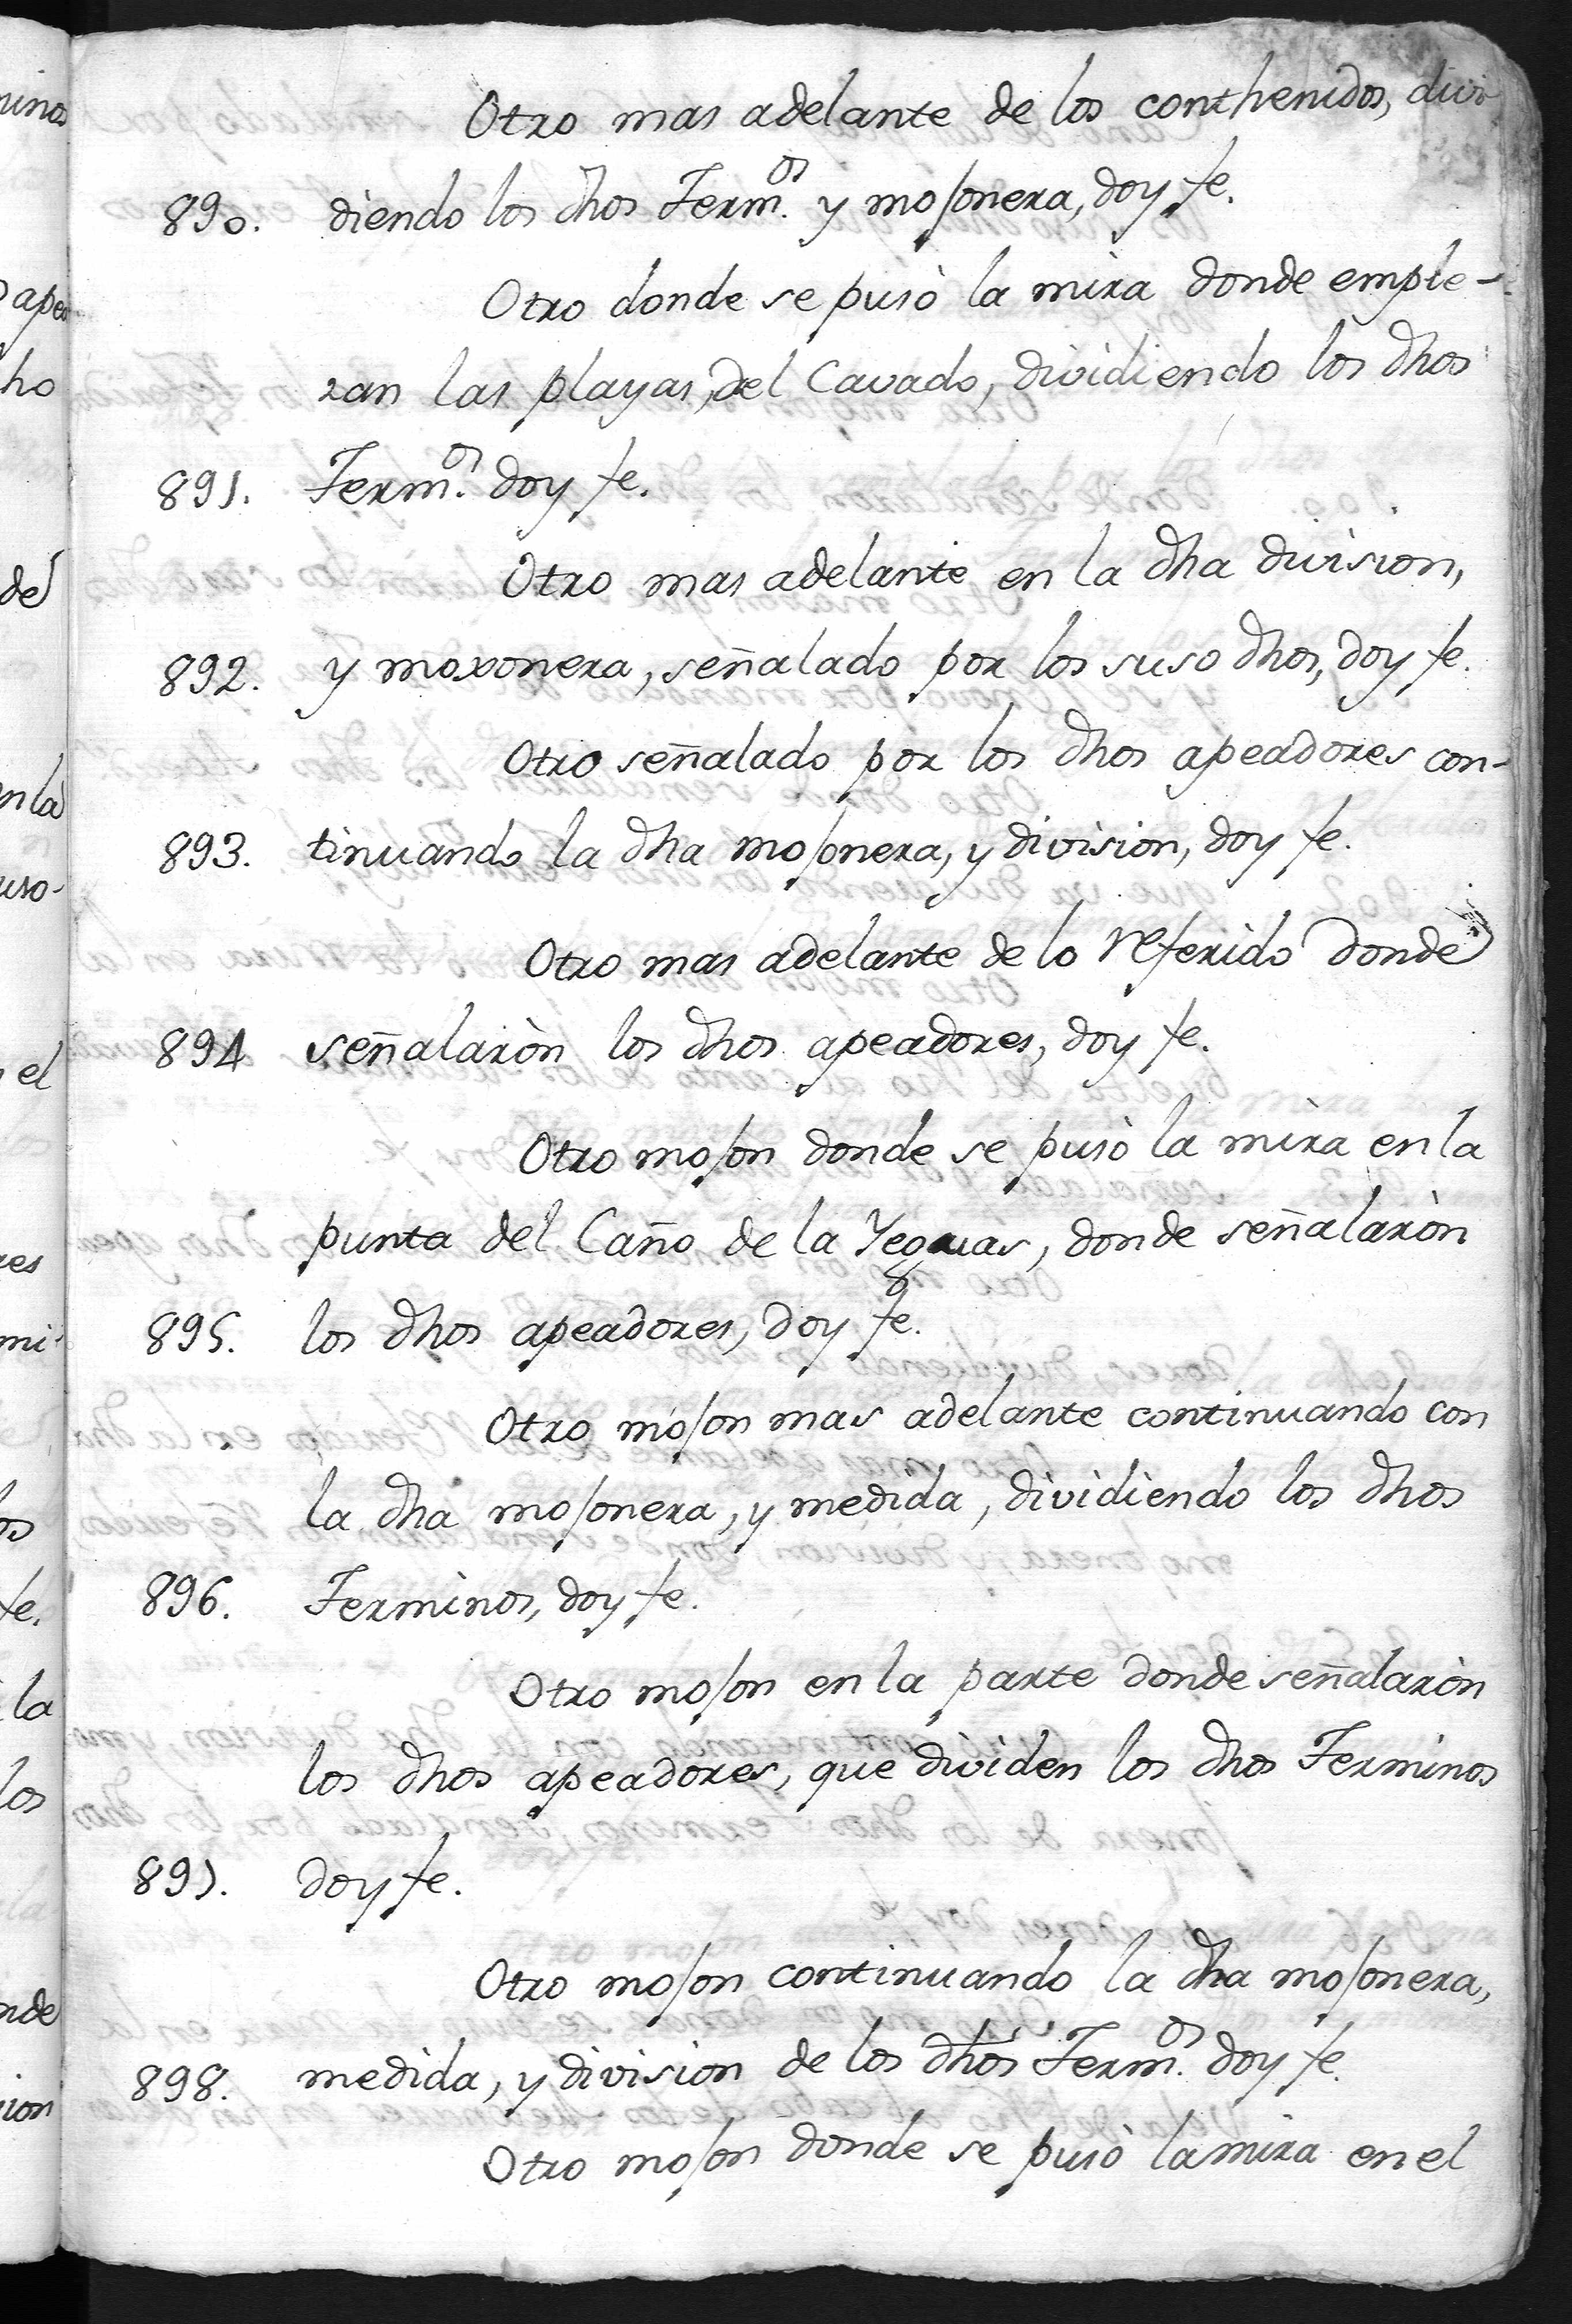 Otro mas adelante de los conthenidos, divi-
890. diendo los dhos Term.os y mojonera, doy fe.
Otro donde se pusò la mira donde empie-
zan las playas, del Cavado, dividiendo los dhos
891. Term.os doy fe.
Otro mas adelante en la dha division,
892. y moxonera, señalado por los suso dhos, doy fe.
Otro señalado por los dhos apeadores con-
893. tinuando la dha mojonera, y division, doy fe.
Otro mas adelante de lo referido donde
894 señalaròn los dhos apeadores, doy fe.
Otro mojon donde se pusò la mira en la
punta del Caño de la Yeguas, donde señalaròn
895. los dhos apeadores, doy fe.
Otro mojon mas adelante continuando con
la dha mojonera, y medida, dividiendo los dhos
896. Terminos, doy fe.
Otro mojon en la parte donde señalaròn
los dhos apeadores, que dividen los dhos Terminos
897. doy fe.
Otro mojon continuando la dha mojonera,
898. medida, y division de los dhos Term.os doy fe.
Otro mojon donde se pusò la mira en el